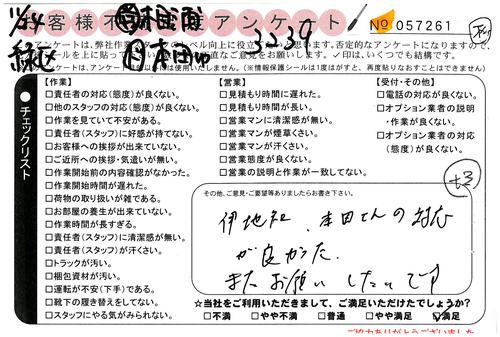 お客様不満足度アンケート
No 057261
11/24
緑区
3239
アンケートは、弊社作業スタッフのレベル向上に役立
います。否定的なアンケートになりますので、
直なご意見をお聞かせ下さい。✓印は、いくつでも結構です。
使用いたしません。(※情報保護シールは1度がすと、再度貼りなおすことはできません)
チェックリスト
【作業】
□責任者の対応(態度)が良くない。
□他のスタッフの対応(態度)が良くない。
□作業を見ていて不安がある。
□責任者(スタッフ)に好感が持てない。
□お客様への挨拶が出来ていない。
□ご近所への挨拶・気遣いが無い。
□作業開始前の内容確認がなかった。
□作業開始時間が遅れた。
□荷物の取り扱いが雑である。
□お部屋の養生が出来ていない。
□作業時間が長すぎる。
□責任者(スタッフ)に清潔感が無い。
□責任者(スタッフ)が汗くさい。
□トラックが汚い。
□梱包資材が汚い。
□運転が不安(下手)である。
□靴下の履き替えをしてない。
□スタッフにやる気がみられない。
【営業】
□見積もり時間に遅れた。
□見積もり時間が長い。
□営業マンに清潔感が無い。
□営業マンが煙草くさい。
□営業マンが汗くさい。
□営業態度が良くない。
□営業の説明と作業が一致してない。
【受付・その他】
□電話の対応が良くない。
□オプション業者の説明
・作業が良くない。
□オプション業者の対応
(態度)が良くない。
その他、ご意見・ご要望等ありましたらお書き下さい。
伊地知、本田さんの対応
が良かった。
またお願いしたいです
☆当社をご利用いただきまして、ご満足いただけたでしょうか?
□不満 □やや不満 □普通 □やや満足 ☑満足
ご協力ありがとうございました